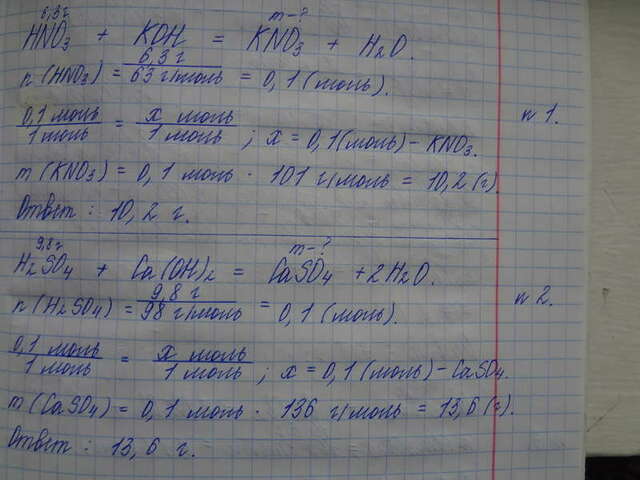 6,3 г m-?
HNO3 + KOH = KNO3 + H2O.
n (HNO3) = 6,3 г / 63 г/моль = 0,1 (моль).
0,1 моль / 1 моль = x моль / 1 моль ; x = 0,1 (моль) - KNO3.
n 1.
m (KNO3) = 0,1 моль · 101 г/моль = 10,2 (г).
Ответ : 10,2 г.
9,8 г m-?
H2SO4 + Ca(OH)2 = CaSO4 + 2H2O.
n (H2SO4) = 9,8 г / 98 г/моль = 0,1 (моль).
n 2.
0,1 моль / 1 моль = x моль / 1 моль ; x = 0,1 (моль) - CaSO4.
m (CaSO4) = 0,1 моль · 136 г/моль = 13,6 (г).
Ответ : 13,6 г.